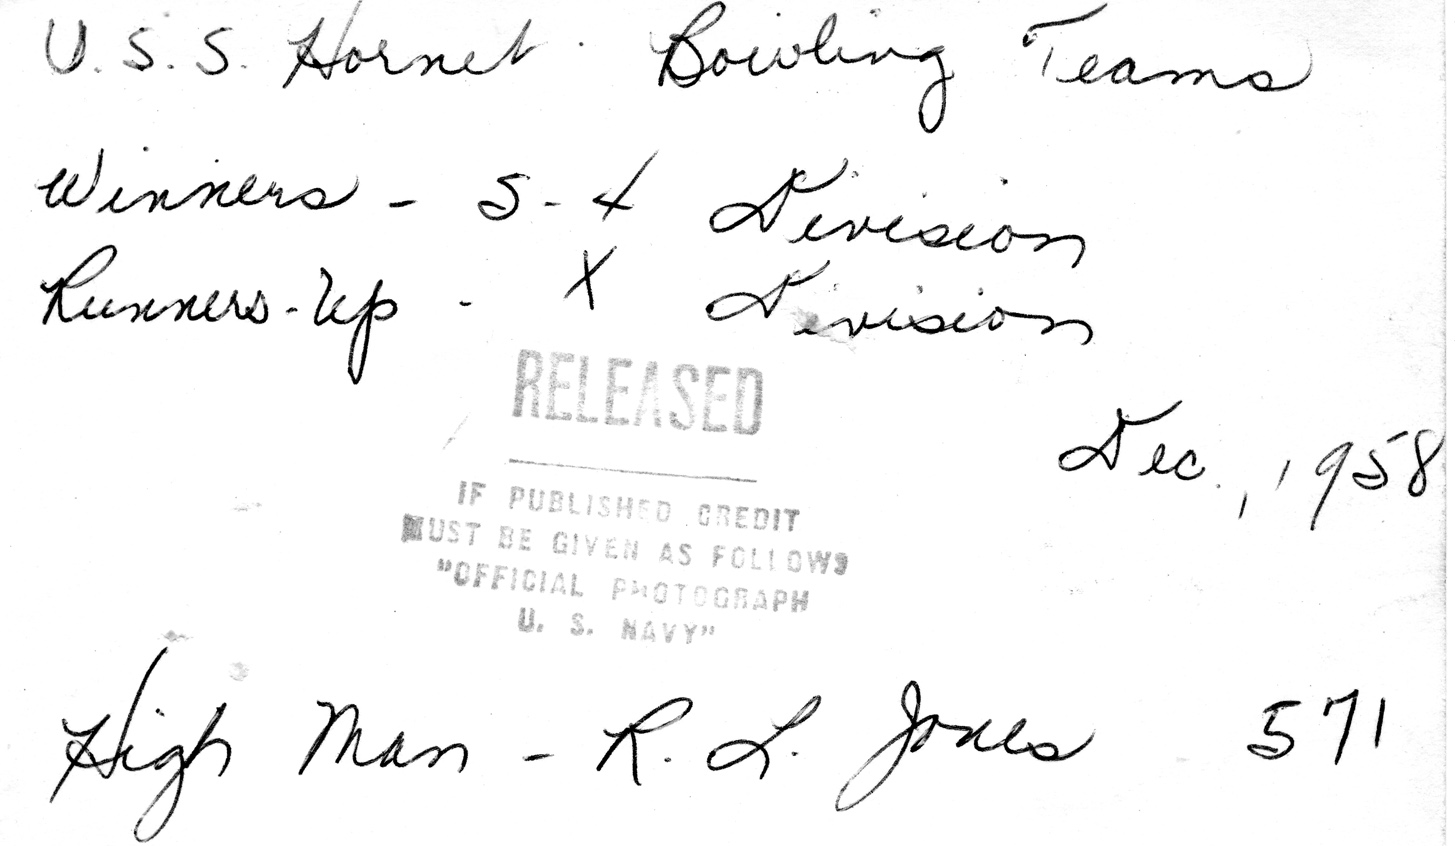 U.S.S. Hornet. Bowling Teams
Winners - S-4 Division
Runners-Up - X Division
RELEASED
Dec., 1958
IF PUBLISHED CREDIT
MUST BE GIVEN AS FOLLOWS
"OFFICIAL PHOTOGRAPH
U. S. NAVY"
High Man - R. L. Jones 571